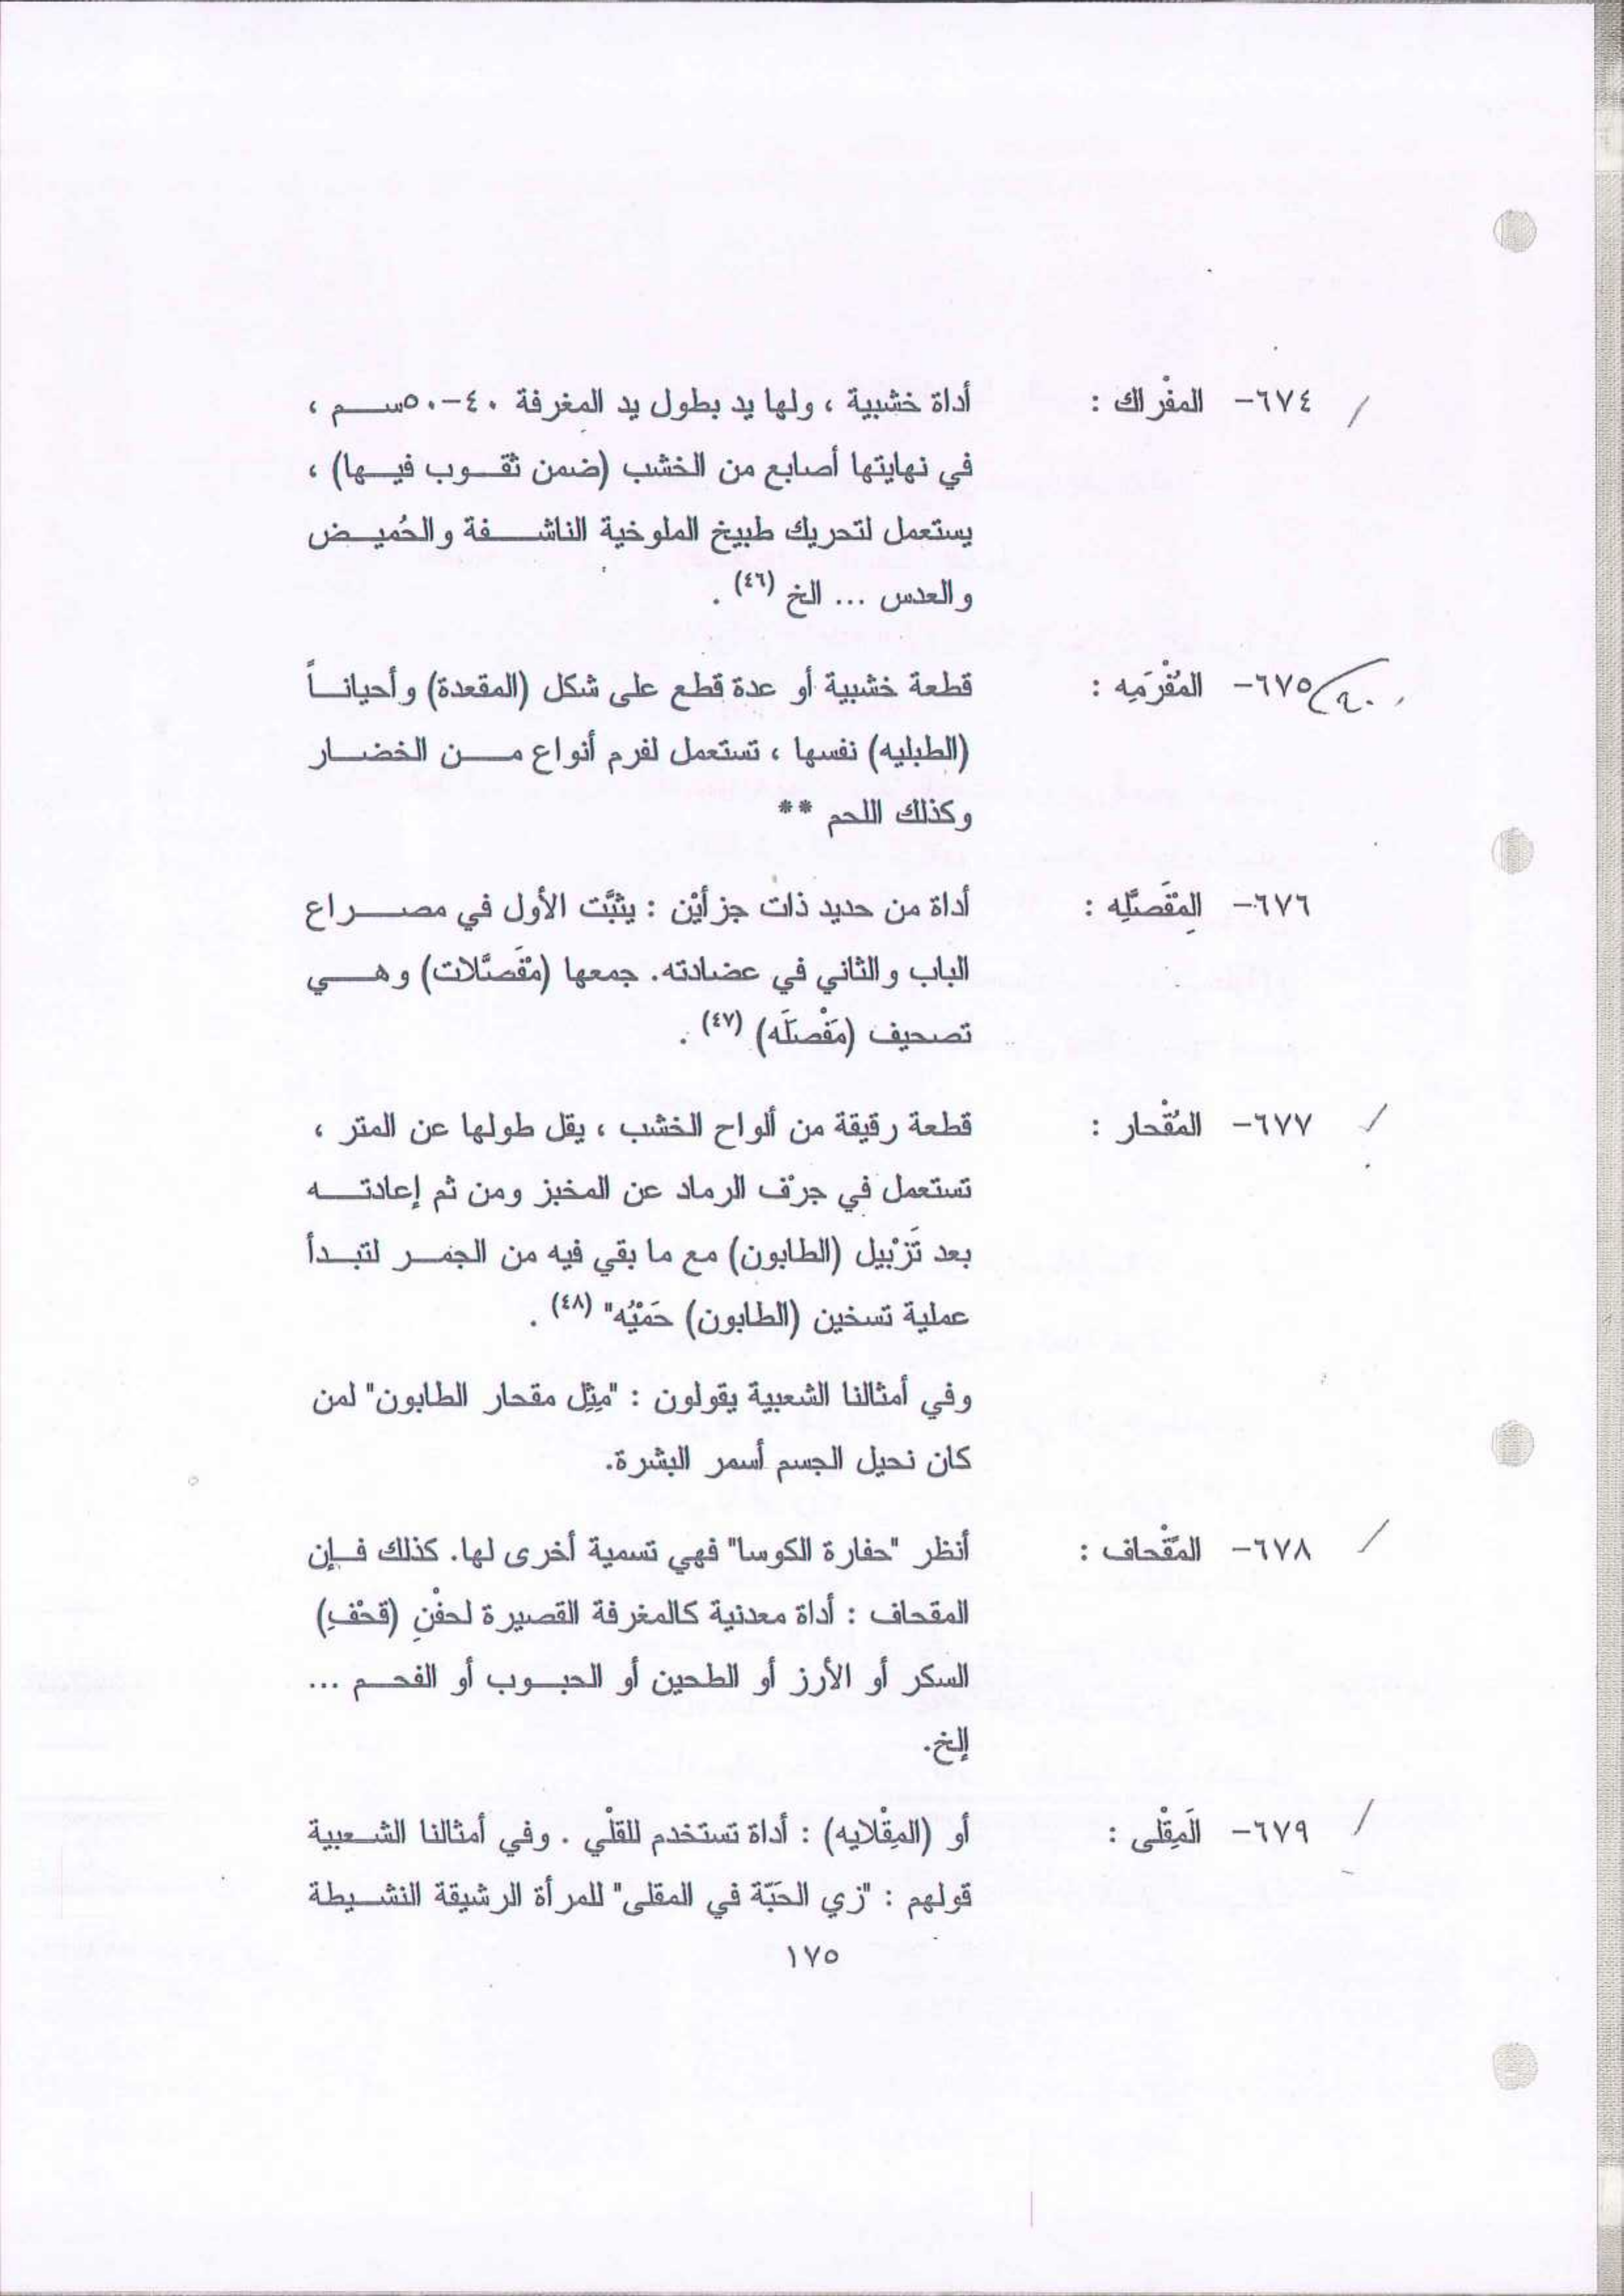 ٦٧٤- المفْراك : أداة خشبية ، ولها يد بطول يد المغرفة ٤٠-٥٠سم ،
في نهايتها أصابع من الخشب (ضمن ثقوب فيها) ،
يستعمل لتحريك طبيخ الملوخية الناشفة والحُميض
والعدس ... الخ (٤٦) .
٦٧٥- المُفْرَمِه : قطعة خشبية أو عدة قطع على شكل (المقعدة) وأحياناً
(الطبليه) نفسها ، تستعمل لفرم أنواع من الخضار
وكذلك اللحم **
٦٧٦- المِقَصَّلِه : أداة من حديد ذات جزأيْن : يثبَّت الأول في مصراع
الباب والثاني في عضادته. جمعها (مْقَصَّلات) وهي
تصحيف (مَفْصلَه) (٤٧) .
٦٧٧- المُقْحار : قطعة رقيقة من ألواح الخشب ، يقل طولها عن المتر ،
تستعمل في جرْف الرماد عن المخبز ومن ثم إعادته
بعد تَزْبيل (الطابون) مع ما بقي فيه من الجمر لتبدأ
عملية تسخين (الطابون) حَمْيُه" (٤٨) .
وفي أمثالنا الشعبية يقولون : "مِثِل مقحار الطابون" لمن
كان نحيل الجسم أسمر البشرة.
٦٧٨- المَقْحاف : أنظر "حفارة الكوسا" فهي تسمية أخرى لها. كذلك فإن
المقحاف : أداة معدنية كالمغرفة القصيرة لحفْنِ (قحْفِ)
السكر أو الأرز أو الطحين أو الحبوب أو الفحم ...
إلخ.
٦٧٩- المَِقْلى : أو (المِقْلايه) : أداة تستخدم للقلْي . وفي أمثالنا الشعبية
قولهم : "زي الحَبّة في المقلى" للمرأة الرشيقة النشيطة
١٧٥